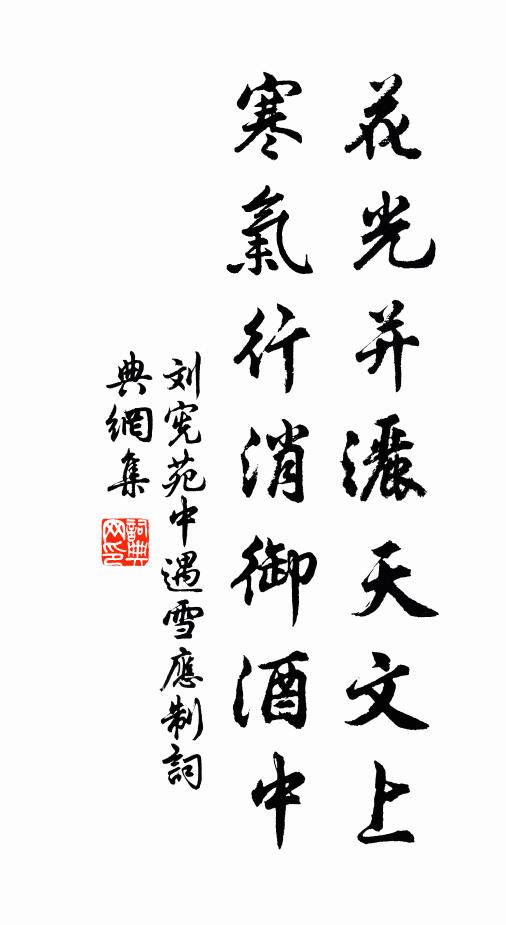 花光并灑天文上
寒氣行消御酒中
刘宪苑中遇雪應制詞
典網集
詞典网印